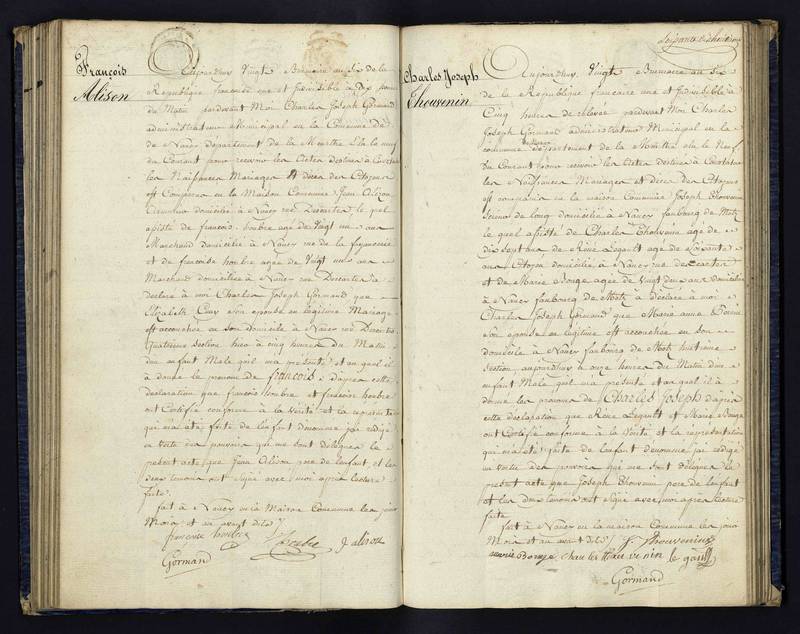 François
Alison
Aujourdhuy Vingt Brumaire an Six de la
Republique francoise une et Indivisible à Dix
du Matin pardevant Moi Charles Joseph Gormand
administrateur Municipal en la Commune
de Nancy departement de la Meurthe Elu le neuf
du Courant pour recevoir les Actes destinés à Constater
les Naissances Mariages et Décès des Citoyens
est Comparu en la Maison Commune Jean Alison
domicilié à Nancy rue Descartes le quel
assisté de francois houbre agé de Vingt un ans
Marchand domicilié à Nancy rue de la
et de francoise houbre agée de Vingt un ans
Marchand domiciliée à Nancy rue Descartes a
declaré à moi Charles Joseph Gormand que
Elizabeth son epouse en legitime Mariage
est accouchée en son domicile à Nancy rue Descartes
Quatrieme section hier à cinq heures du Matin
d'un enfant Male qu'il m'a présenté et au quel il
à donné le prenom de françois, d'après cette
declaration que françois houbre et francoise houbre
ont Certifié conforme à la Verité et la représentation
qui m'a eté faite de l'enfant denommé j'ai redigé
en vertu des pouvoirs qui me sont délegués le
présent acte que Jean Alison pere de l'enfant et les
deux temoins ont signé avec moi après lecture
faite
fait à Nancy en la Maison Commune les jour
Mois et an avant dits
francoise houbre houbre J alison
Gormand
Charles Joseph
Thouvenin
Aujourdhuy Vingt Brumaire an Six
de la Republique francaise une et Indivisible à
Cinq heures de relevée pardevant Moi Charles
Joseph Gormand administrateur Municipal en la
commune de Nancy departement de la Meurthe elu le Neuf
du Courant pour recevoir les Actes destinés à Constater
les Naissances Mariages et Décès des Citoyens
est comparu en la maison Commune Joseph Thouvenin
domicilié à Nancy faubourg de Metz
le quel assisté de Charles Thouvenin agé de
Dix sept ans de René Legault agé de Soixante
ans Citoyen domicilié à Nancy rue Descartes
et de Marie agée de Vingt deux ans domiciliée
à Nancy faubourg de Metz a declaré à moi
Charles Joseph Gormand que Marie anne
son epouse en legitime est accouchée en son
domicile à Nancy faubourg de Metz huitieme
section, aujourdhuy à onze heures du Matin d'un
enfant Male qu'il m'a présenté et au quel il à
donné les prenoms de Charles Joseph d'après
cette déclaration que René Legault et Marie
ont Certifié conforme à la Verité et la représentation
qui m'a eté faite de l'enfant denommé j'ai redigé
en vertu des pouvoirs qui me sont délegués le
présent acte que Joseph Thouvenin pere de l'enfant
et les deux temoins ont signé avec moi après lecture
faite
fait à Nancy en la maison Commune les jour
Mois et an avant dits J. Thouvenin
marie charles thouvenin le gault
Gormand